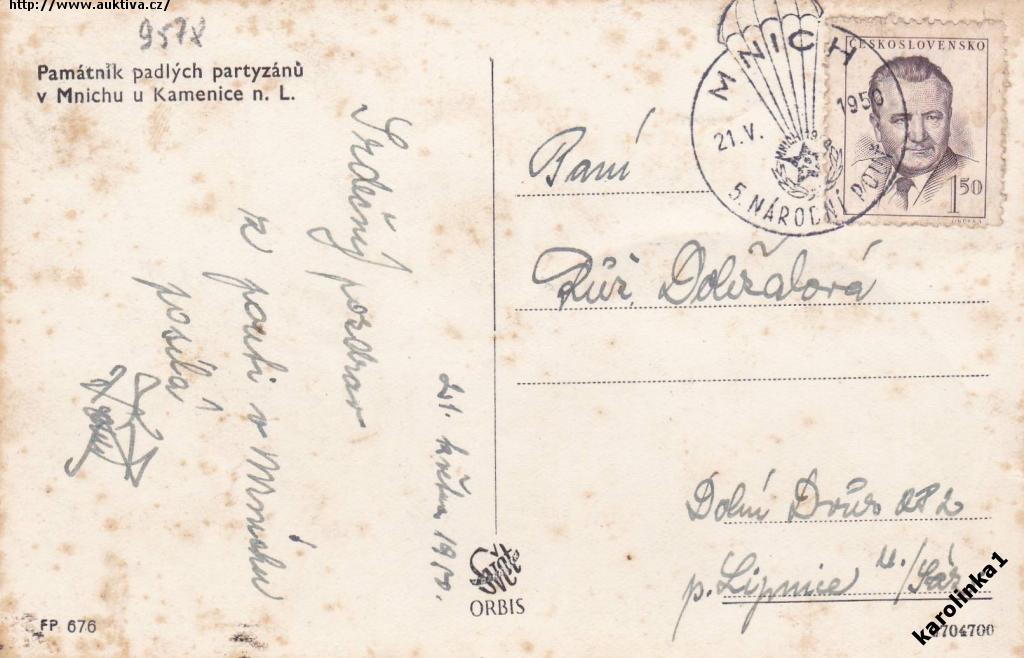 http://www.auktiva.cz/
957X
Památník padlých partyzánů
v Mnichu u Kamenice n. L.
Srdečný pozdrav
z pouti v Mnichu
posílá
21. května 1950.
ORBIS
FP 676
MNICH
21.V. 1950
5. NÁRODNÍ POUŤ
ČESKOSLOVENSKO
1 50
Paní
Růž. Doležalová
Dolní
p. Lipnice
704700
karolinka1